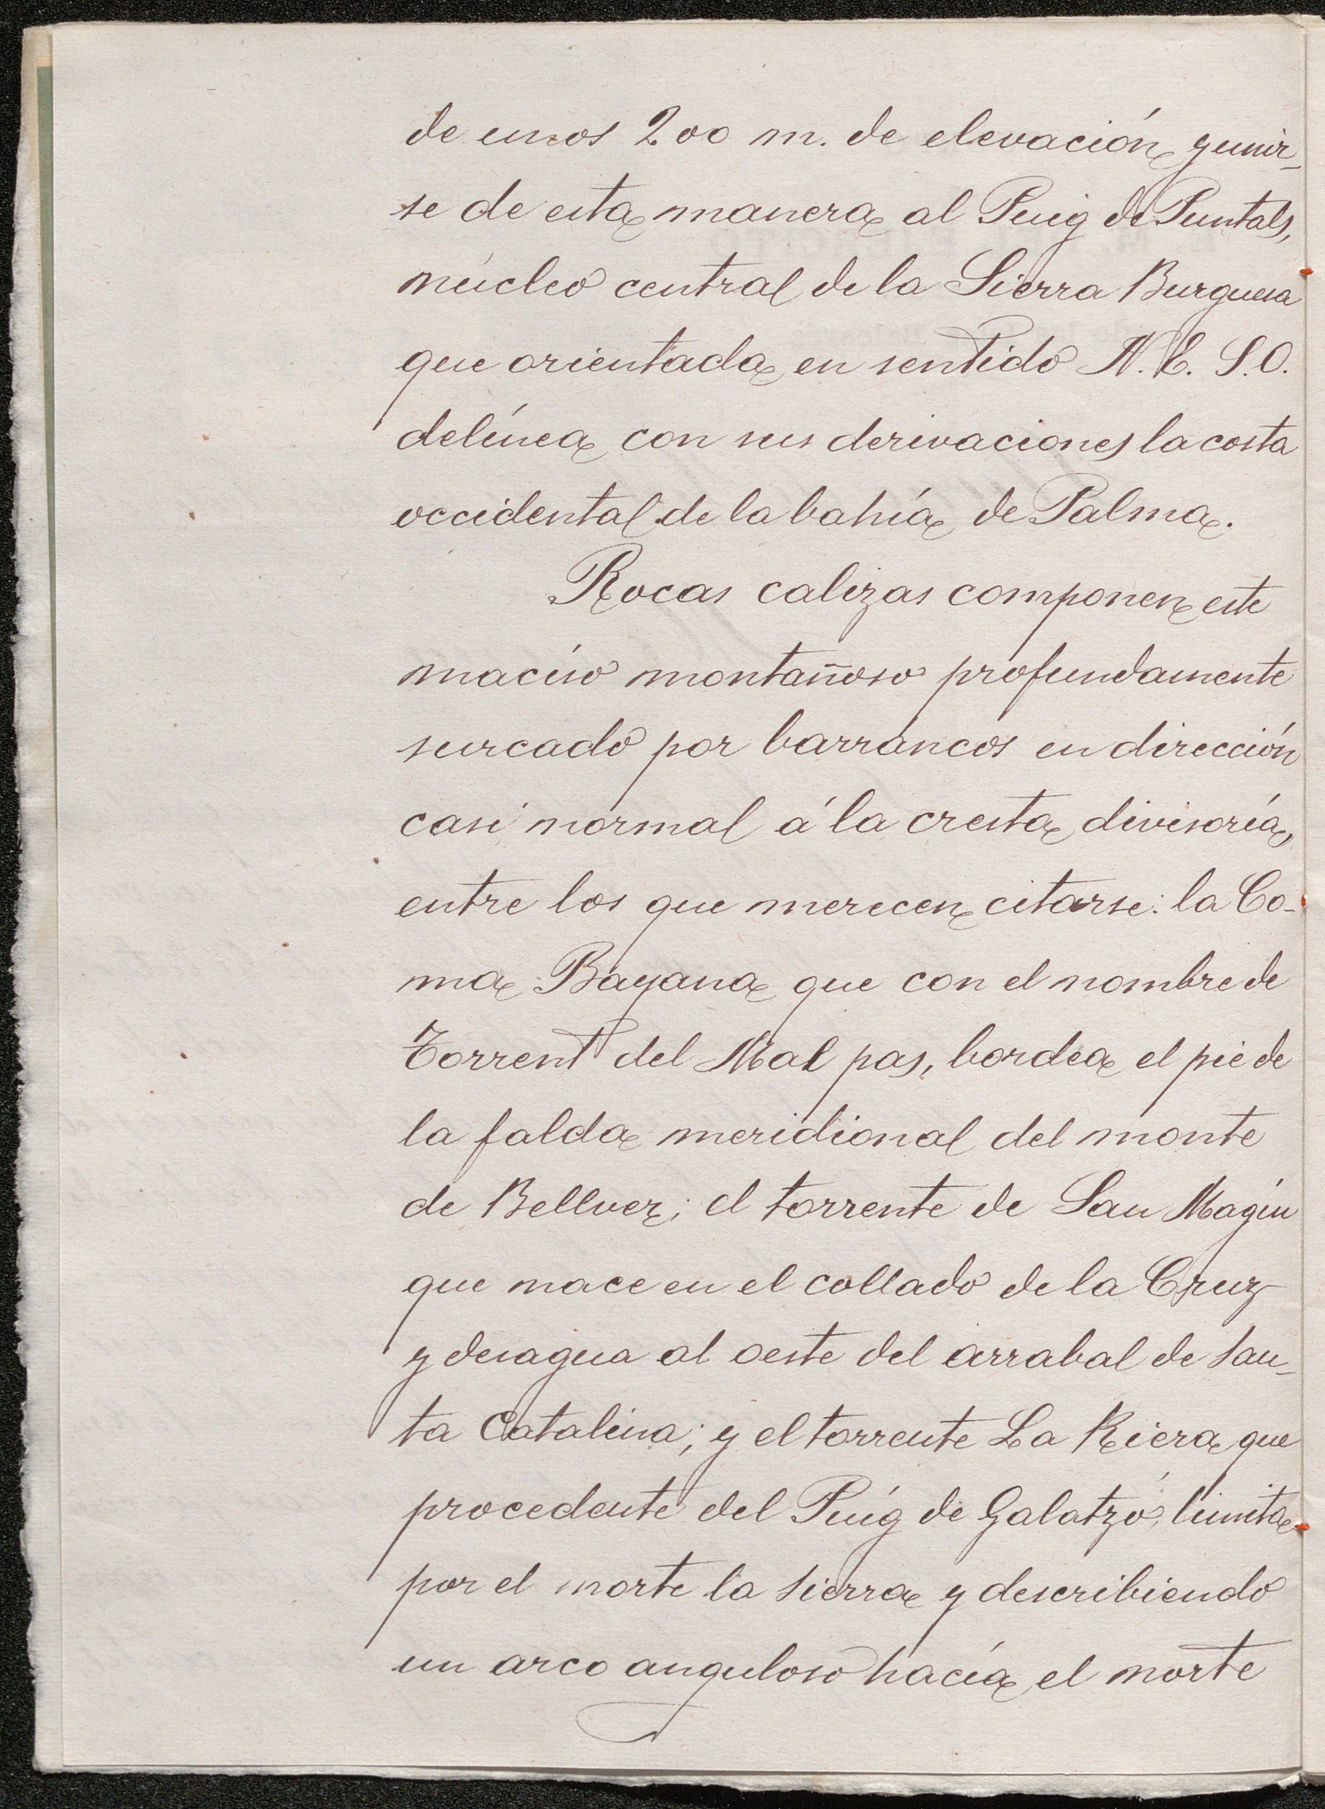 de unos 200 m. de elevación y unir-
se de esta manera al Puig de Puntals,
núcleo central de la Sierra Burguesa
que orientada en sentido N.E. S.O.
delínea con sus derivaciones la costa
occidental de la bahía de Palma.
Rocas calizas componen este
macíso montañoso profundamente
surcado por barrancos en dirección
casi normal á la cresta divisoría,
entre los que merecen citarse: la Co-
ma Bayana que con el nombre de
Torrent del Mal pas, bordea el pie de
la falda meridional del monte
de Bellver; el torrente de San Magín
que nace en el collado de la Cruz
y desagua al oeste del arrabal de San-
ta Catalina; y el torrente La Riera que
procedente del Puíg de Galatzó, limita
por el norte la sierra y describiendo
un arco anguloso hacía el norte